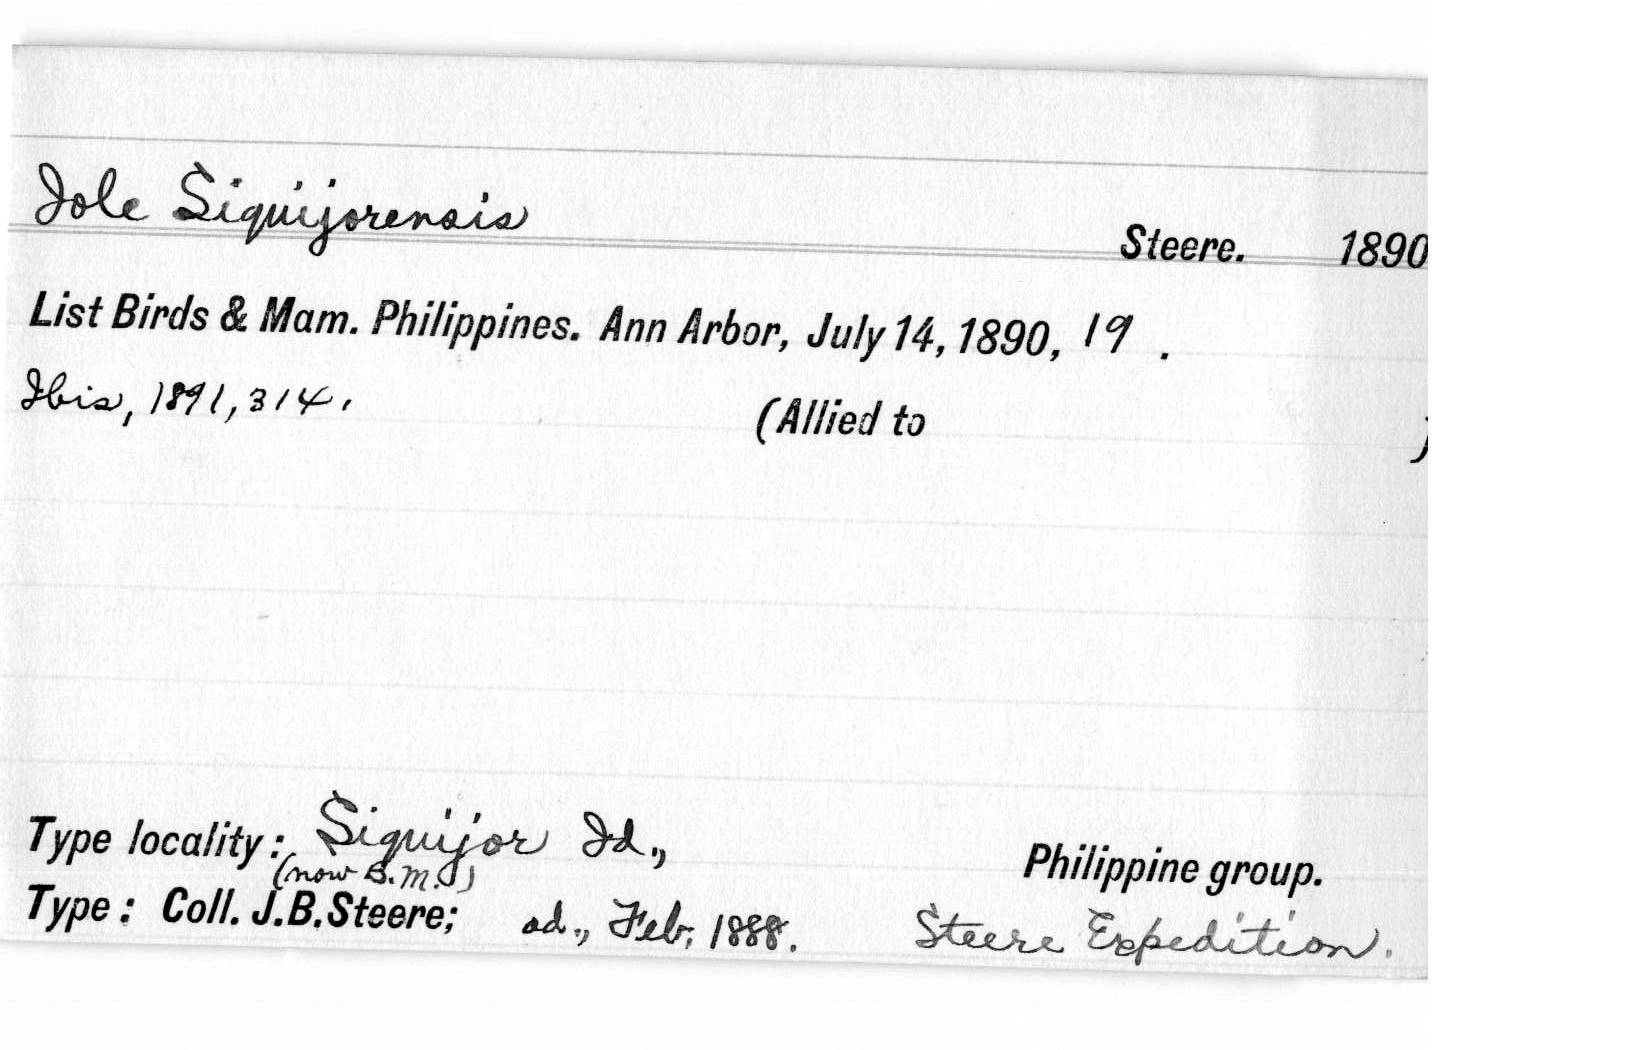 Iole Siquijorensis
Steere. 1890
List Birds & Mam. Philippines. Ann Arbor, July 14, 1890, 19 .
Ibis, 1891, 314. (Allied to )
Type locality: Siquijor Id., Philippine group.
(now B.M.)
Type: Coll. J.B.Steere; ad., Feb, 1888. Steere Expedition.